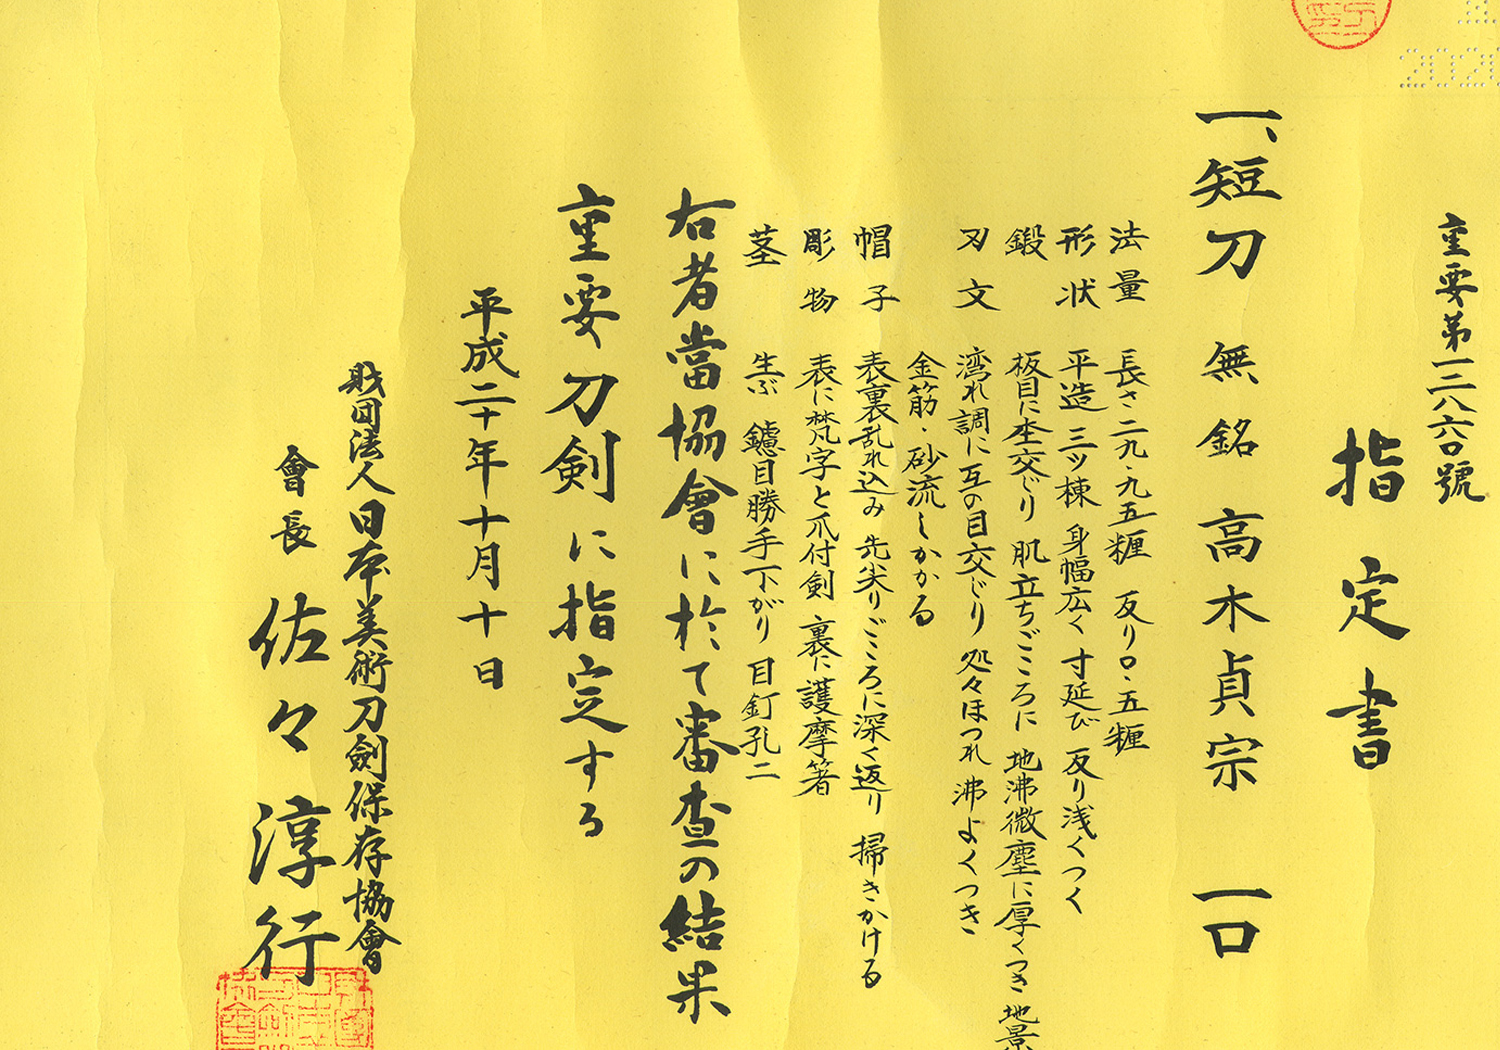 重要第一二八六〇號
指定書
一、短刀 無銘 高木貞宗 一口
法量 長さ二九・九五糎 反り〇・五糎
形状 平造 三ツ棟 身幅広く 寸延び 反り浅くつく
鍛 板目に杢交じり 肌立ちごころに 地沸微塵に厚くつき 地景
刃文 湾れ調に互の目交じり 処々ほつれ 沸よくつき
金筋・砂流しかかる
帽子 表裏乱れ込み 先尖りごころに深く返り 掃きかける
彫物 表に梵字と爪付剣 裏に護摩箸
茎 生ぶ 鑢目勝手下がり 目釘孔二
右者當協會に於て審査の結果
重要刀剣に指定する
平成二十年十月十日
財団法人日本美術刀剣保存協會
會長 佐々淳行